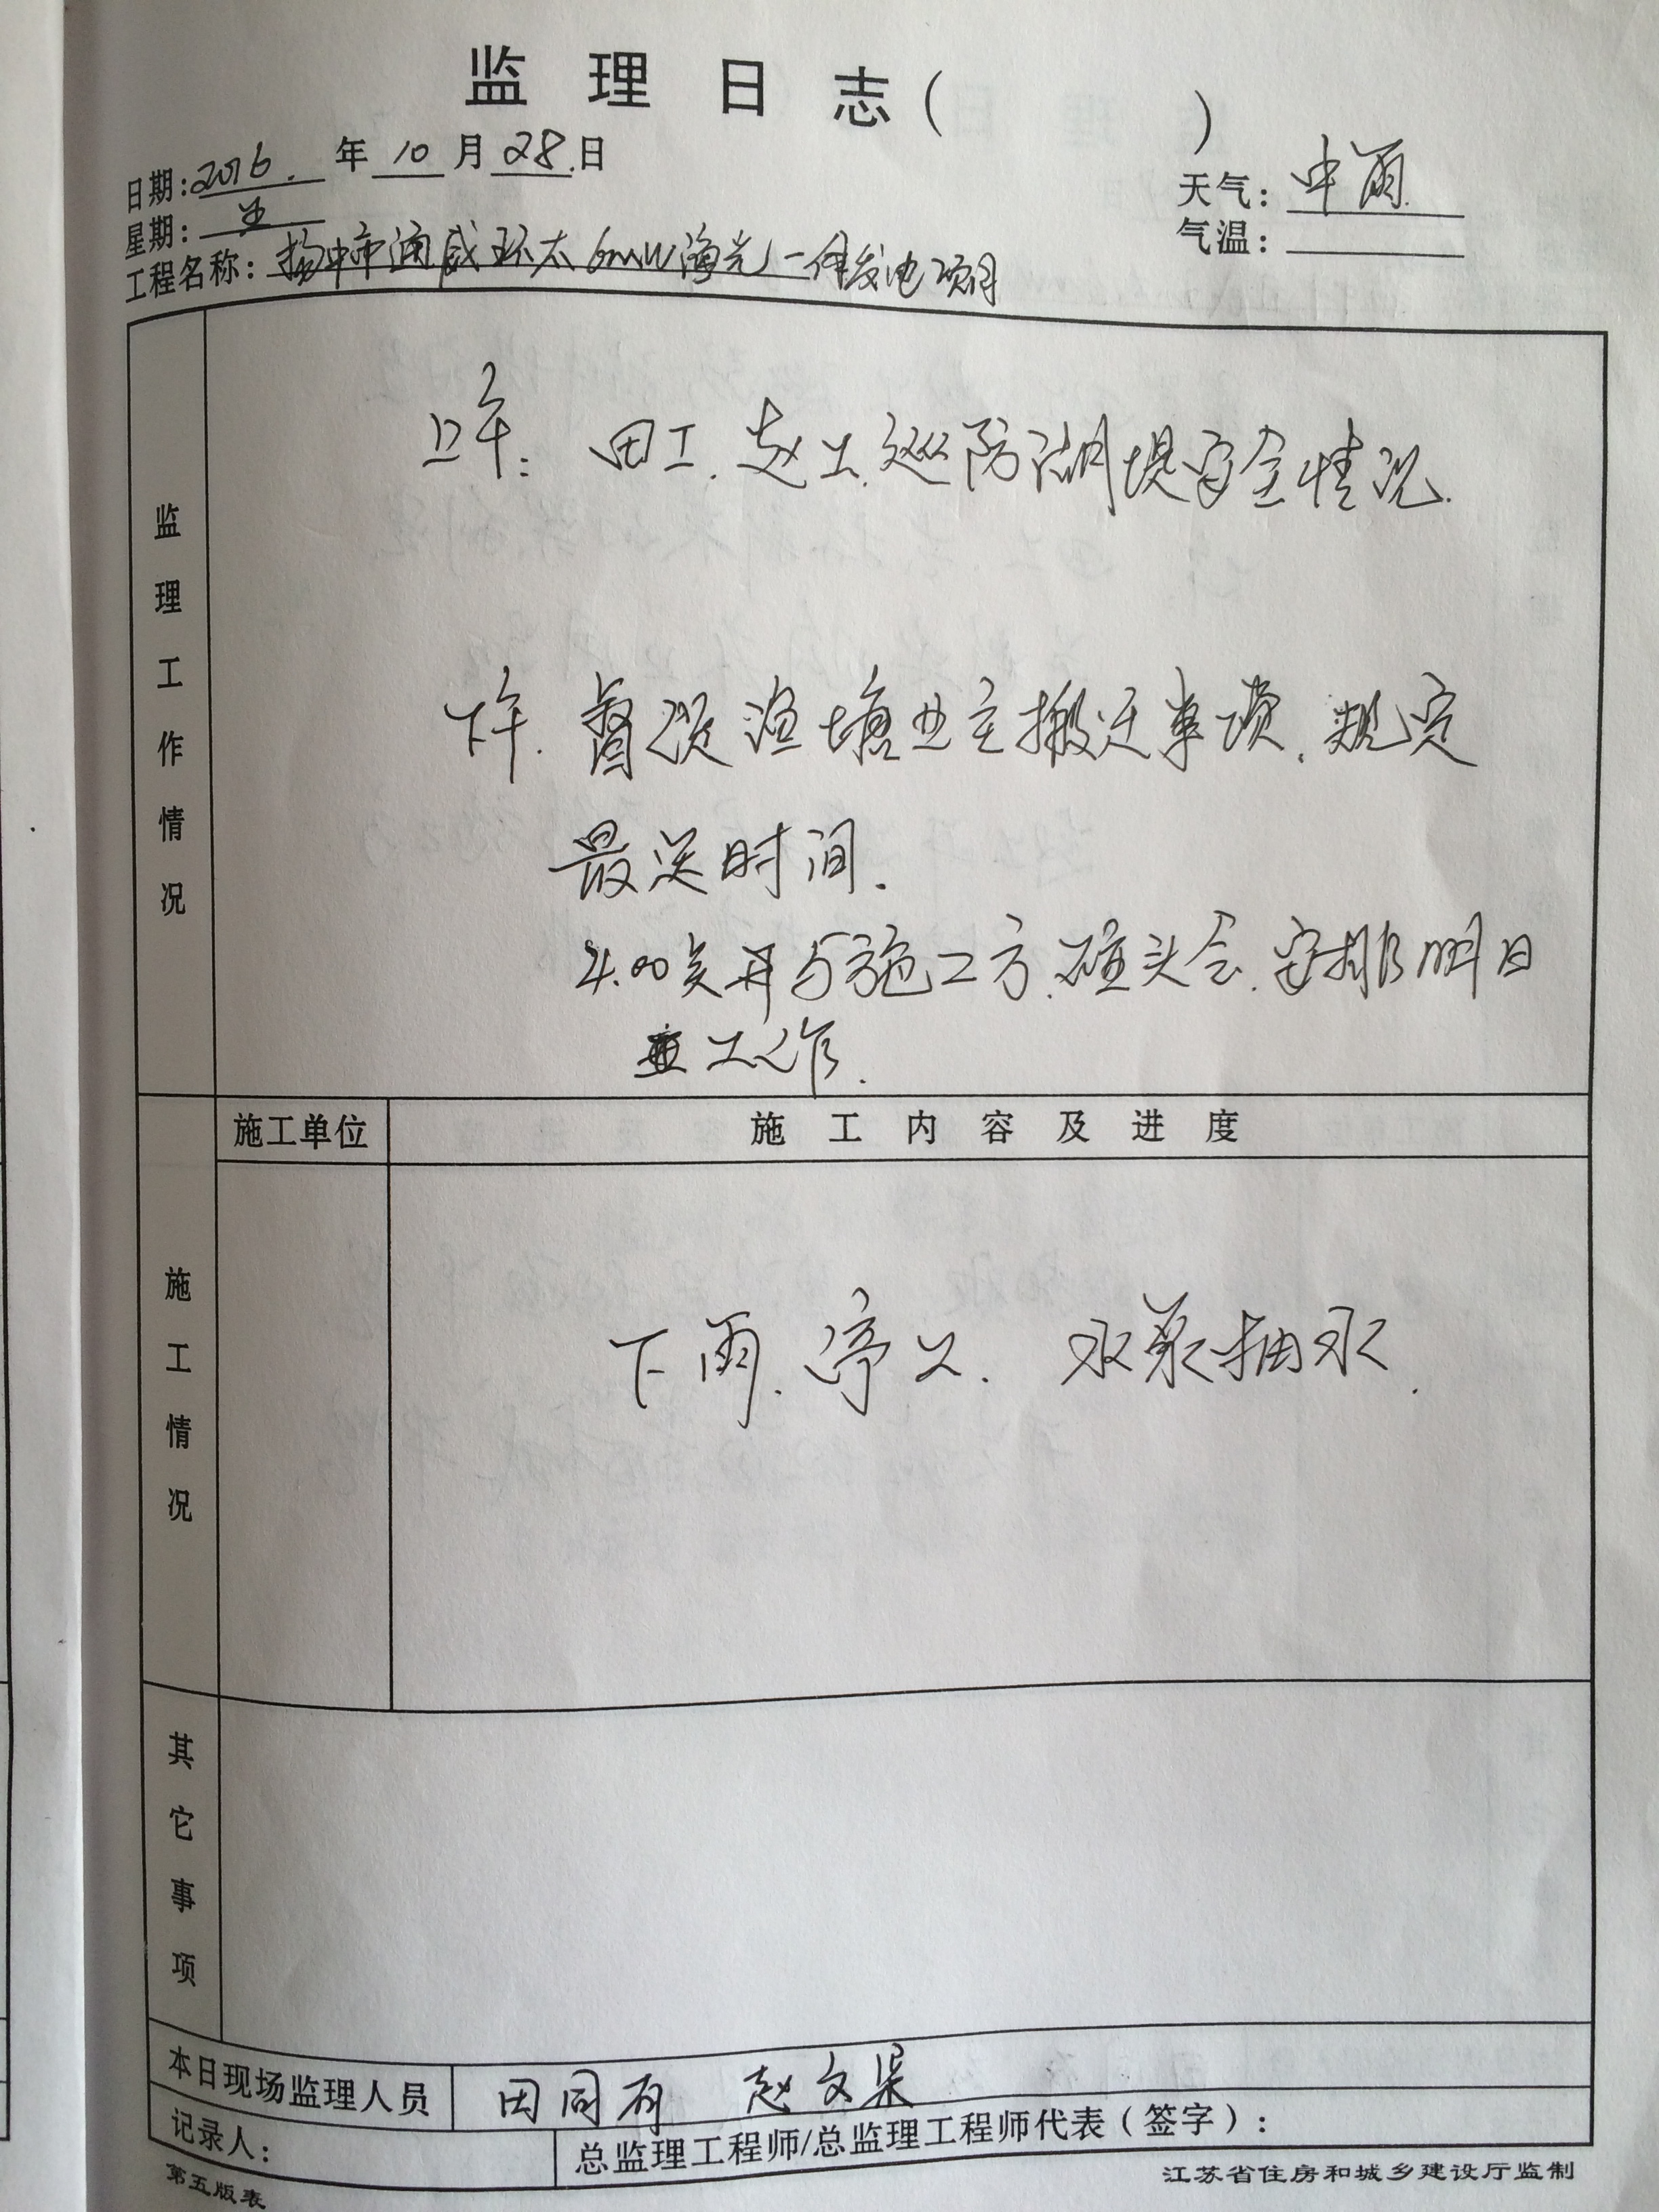 监理日志( )
日期:2016.年10月28.日
天气: 中雨.
星期: 五
气温:
工程名称: 扬中市通威环太6MW渔光一体发电项目
监理工作情况
上午: 田工.赵工.巡防湖堤安全情况.
下午. 督促渔塘业主搬迁事项.规定
最迟时间.
4.00点开与施工方.碰头会.安排明日
工作.
施工单位
施工内容及进度
施工情况
下雨.停工. 水泵抽水.
其它事项
本日现场监理人员
田同 赵文
记录人:
总监理工程师/总监理工程师代表(签字):
第五版表
江苏省住房和城乡建设厅监制